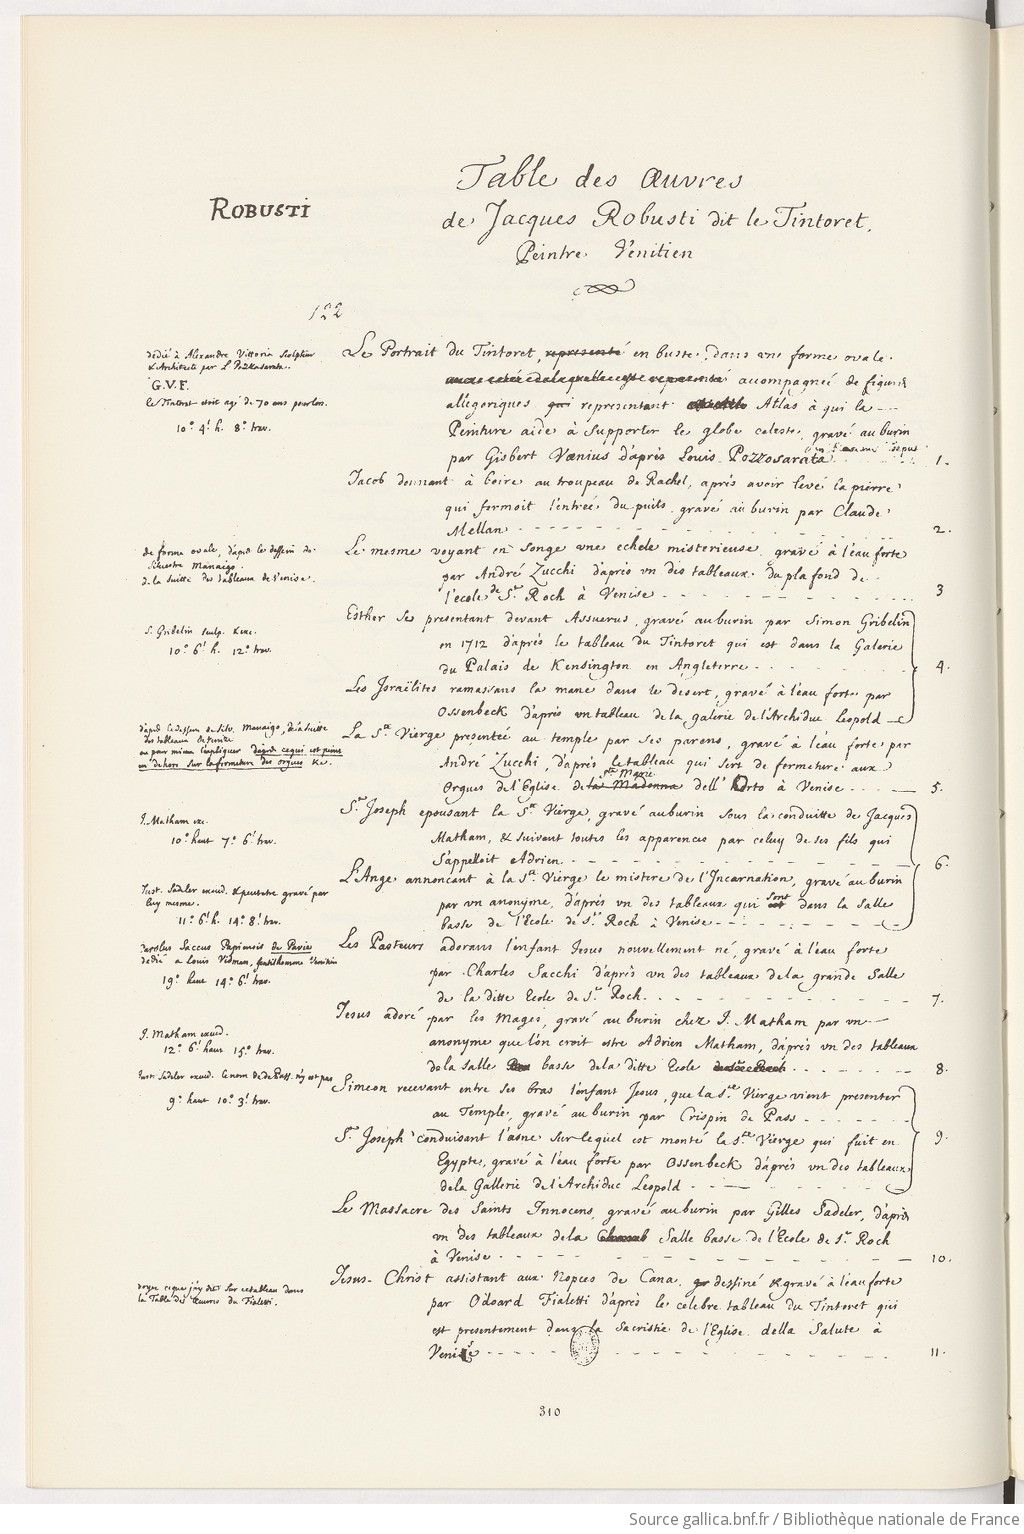 Table des Œuvres
ROBUSTI
de Jacques Robusti dit le Tintoret,
Peintre Venitien
122
dedié à Alexandre Vittoria Sculpteur
& Architecte par L Pozzosarata.
G.V.F.
le Tintoret etoit agé de 70 ans pour lors.
10º 4ˡ h. 8º trav.
Le Portrait du Tintoret, representé en buste, dans une forme ovale.
acompagneé de figures
allegoriques qui representant Atlas à qui la
Peinture aide à supporter le globe celeste, gravé au burin
par Gisbert Vænius d'aprés Louis Pozzosarata 1.
Jacob donnant à boire au troupeau de Rachel, aprés avoir levé la pierre
qui formoit l'entrée du puits gravé au burin par Claude
Mellan 2.
de forme ovale, d'aprés le dessein de
Silvestre Manaigo.
d. la suitte des tableaux de Venise.
Le mesme voyant en songe une echele misterieuse gravé à l'eau forte
par André Zucchi d'aprés vn des tableaux du plafond de
l'ecole de Sᵗ Roch à Venise 3
S. Gribelin sculp. &exc.
10º 6ˡ h. 12º trav.
Esther se presentant devant Assuerus, gravé au burin par Simon Gribelin
en 1712 d'aprés le tableau du Tintoret qui est dans la Galerie
du Palais de Kensington en Angleterre 4.
Les Israëlites ramassans la mane dans le desert, gravé à l'eau forte par
Ossenbeck d'aprés vn tableau de la galerie de l'Archiduc Leopold
d'aprés le dessein de Silv. Manaigo, de la suitte
des tableaux de Venise
ou pour mieux l'expliquer d'aprés ce qui est peint
en dehors sur la fermeture des orgues &c.
La Sᵗᵉ Vierge presentée au temple par ses parens, gravé à l'eau forte par
André Zucchi, d'aprés le tableau qui sert de fermeture aux
Sᵗᵉ Marie
Orgues de l'Eglise de la Madonna dell' Orto à Venise 5.
J. Matham exc.
10º haut 7º 6ˡ trav.
Sᵗ Joseph epousant la Sᵗᵉ Vierge, gravé au burin sous la conduitte de Jacques
Matham, & suivant toutes les apparences par celuy de ses fils qui
s'appelloit Adrien 6.
Just. Sadler excud. & peutetre gravé par
luy mesme.
11º 6ˡ h. 14º 8ˡ trav.
L'Ange annoncant à la Sᵗᵉ Vierge le mistere de l'Incarnation, gravé au burin
par vn anonyme, d'aprés vn des tableaux qui sont dans la Salle
basse de l'Ecole de Sᵗ Roch à Venise
Carolus Saccus Papiensis de Pavie
dedié a Louis Vidman, gentilhomme Venitien
19º haut 14º 6ˡ trav.
Les Pasteurs adorans l'enfant Jesus nouvellement né, gravé à l'eau forte
par Charles Sacchi d'aprés vn des tableaux de la grande Salle
de la ditte Ecole de Sᵗ Roch. 7.
J. Matham excud.
12º 6ˡ haut 15º trav.
Jesus adoré par les Mages, gravé au burin chez J. Matham par vn
anonyme que l'on croit etre Adrien Matham, d'aprés vn des tableaux
de la Salle basse de la ditte Ecole 8.
Just. Sadeler excud. le nom de de Pass. n'y est pas
9º haut 10º 3ˡ trav.
Simeon recevant entre ses bras l'enfant Jesus, que la Sᵗᵉ Vierge vient presenter
au Temple, gravé au burin par Crispin de Pass
Sᵗ Joseph conduisant l'asne sur lequel est monté la Sᵗᵉ Vierge qui fuit en 9.
Egypte, gravé à l'eau forte par Ossenbeck d'aprés vn des tableaux
de la Gallerie de l'Archiduc Leopold
Le Massacre des Saints Innocens, gravé au burin par Gilles Sadeler, d'aprés
vn des tableaux de la Salle basse de l'Ecole de Sᵗ Roch
à Venise 10.
voyez ce que j'ay dit sur ce tableau dans
la Table des Œuvres du Fialetti.
Jesus-Christ assistant aux Nopces de Cana, dessiné & gravé à l'eau forte
par Odoard Fialetti d'aprés le celebre tableau du Tintoret qui
est presentement dans la Sacristie de l'Eglise della Salute à
Venise 11.
310
Source gallica.bnf.fr / Bibliothèque nationale de France